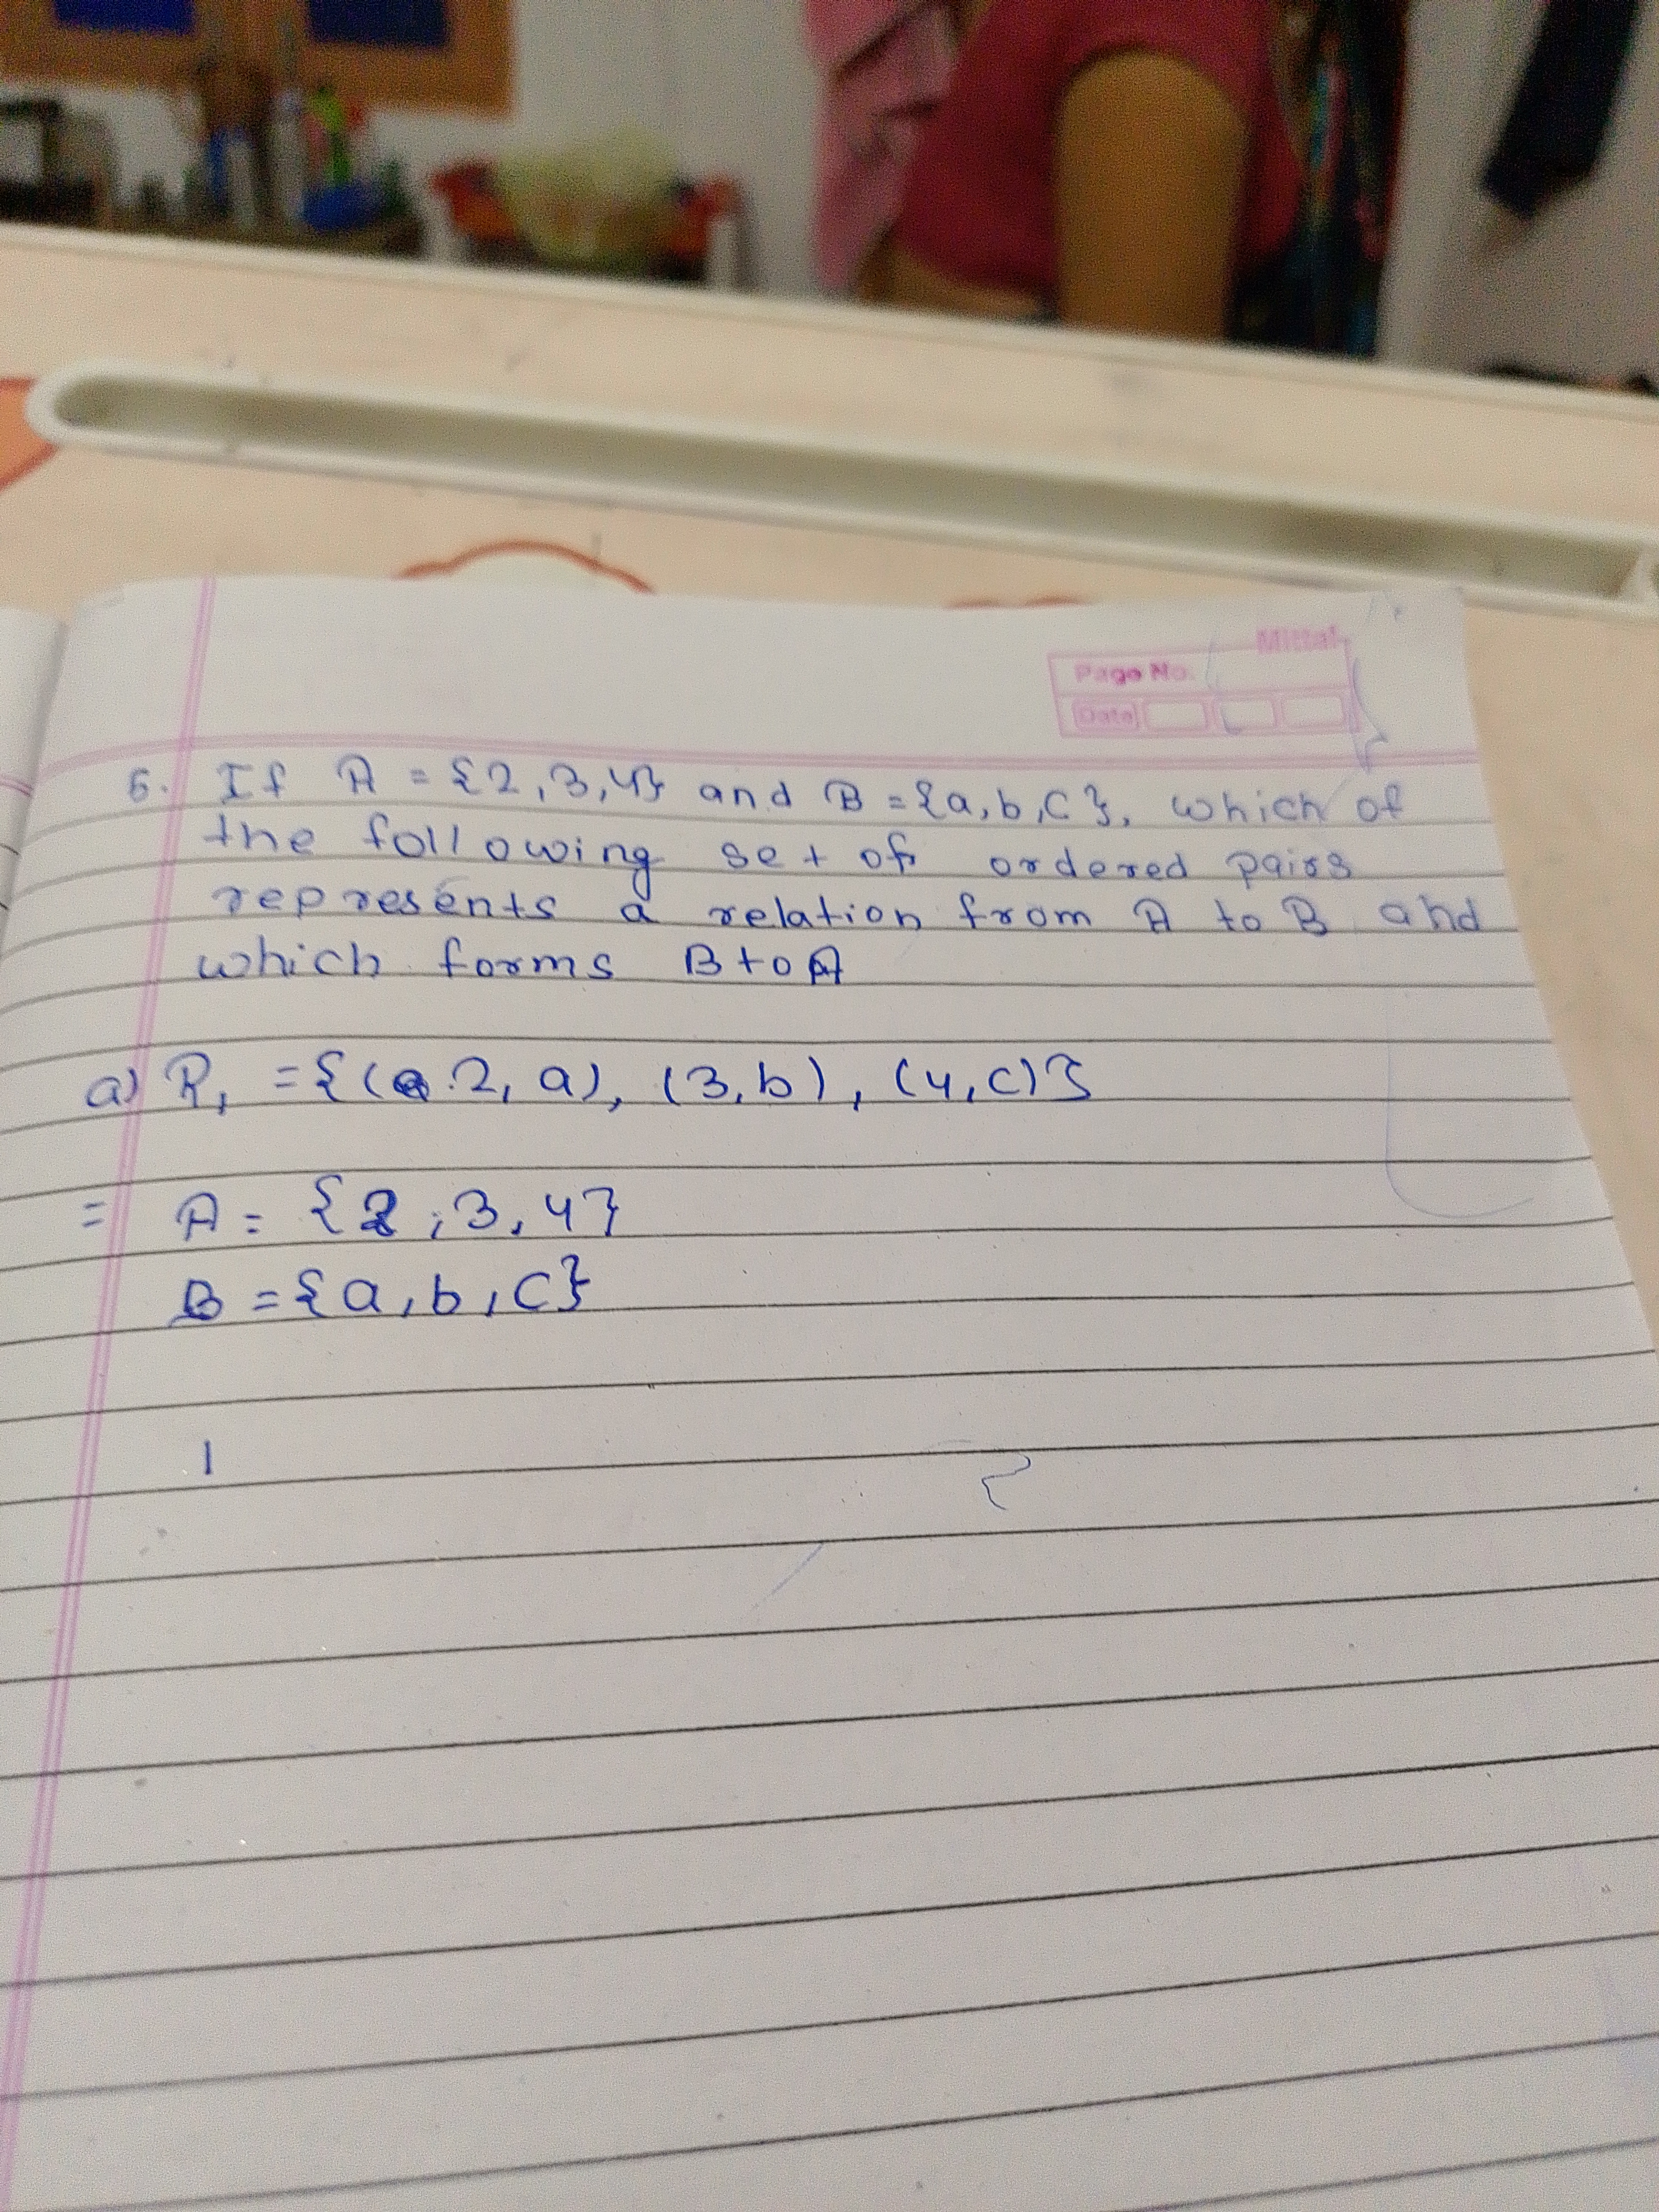 Mittal
Page No.
Date
6. If A = {2,3,4} and B = {a,b,c}, which of
the following set of ordered pairs
represents a relation from A to B and
which forms B to A
a) R₁ = {(2, a), (3,b), (4,c)}
= A = {2,3,4}
B = {a,b,c}